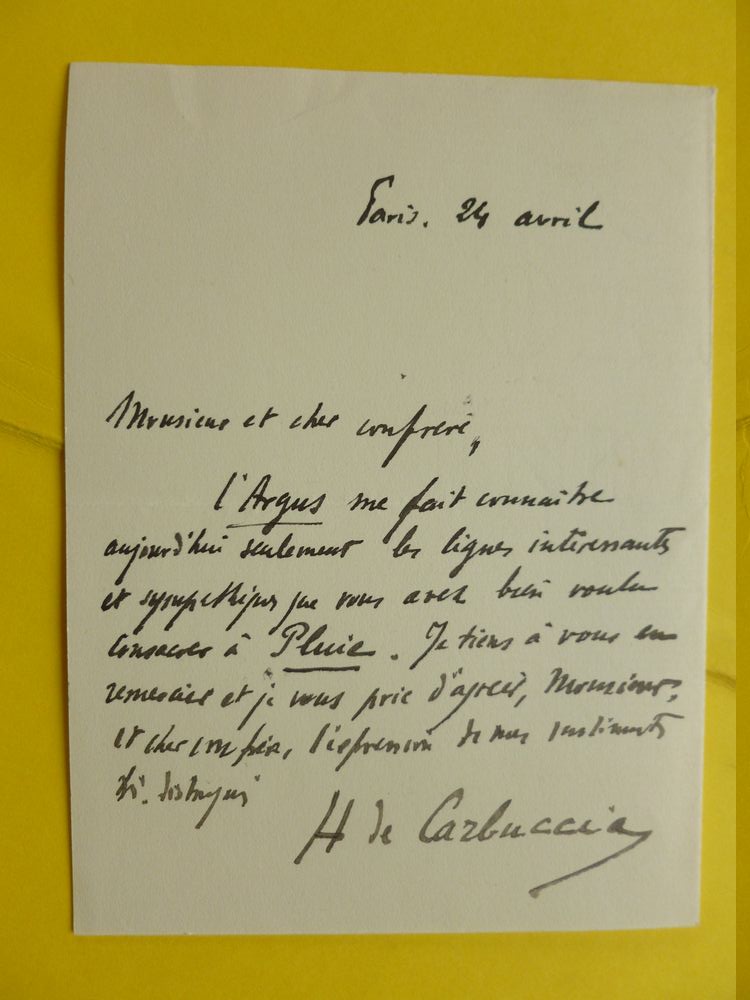 Paris. 24 avril
Monsieur et cher confrère,
l'Argus me fait connaître
aujourd'hui seulement les lignes intéressantes
et sympathiques que vous avez bien voulu
consacrer à Pluie. Je tiens à vous en
remercier et je vous prie d'agréer, Monsieur,
et cher confrère, l'expression de mes sentiments
très distingués
H de Carbuccia